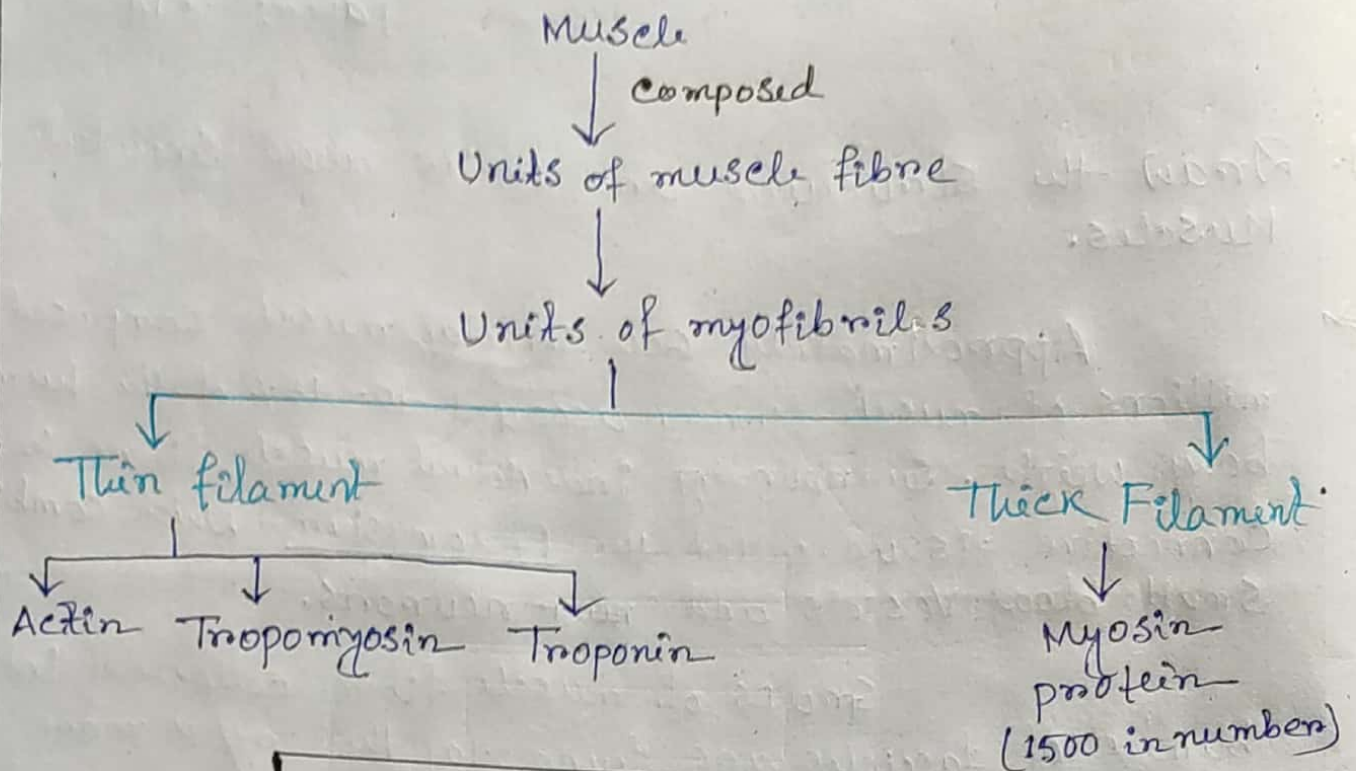 Muscle
composed
Units of muscle fibre
Units of myofibrils
Thin filament
Thick Filament
Actin Tropomyosin Troponin
Myosin
protein
(1500 in number)